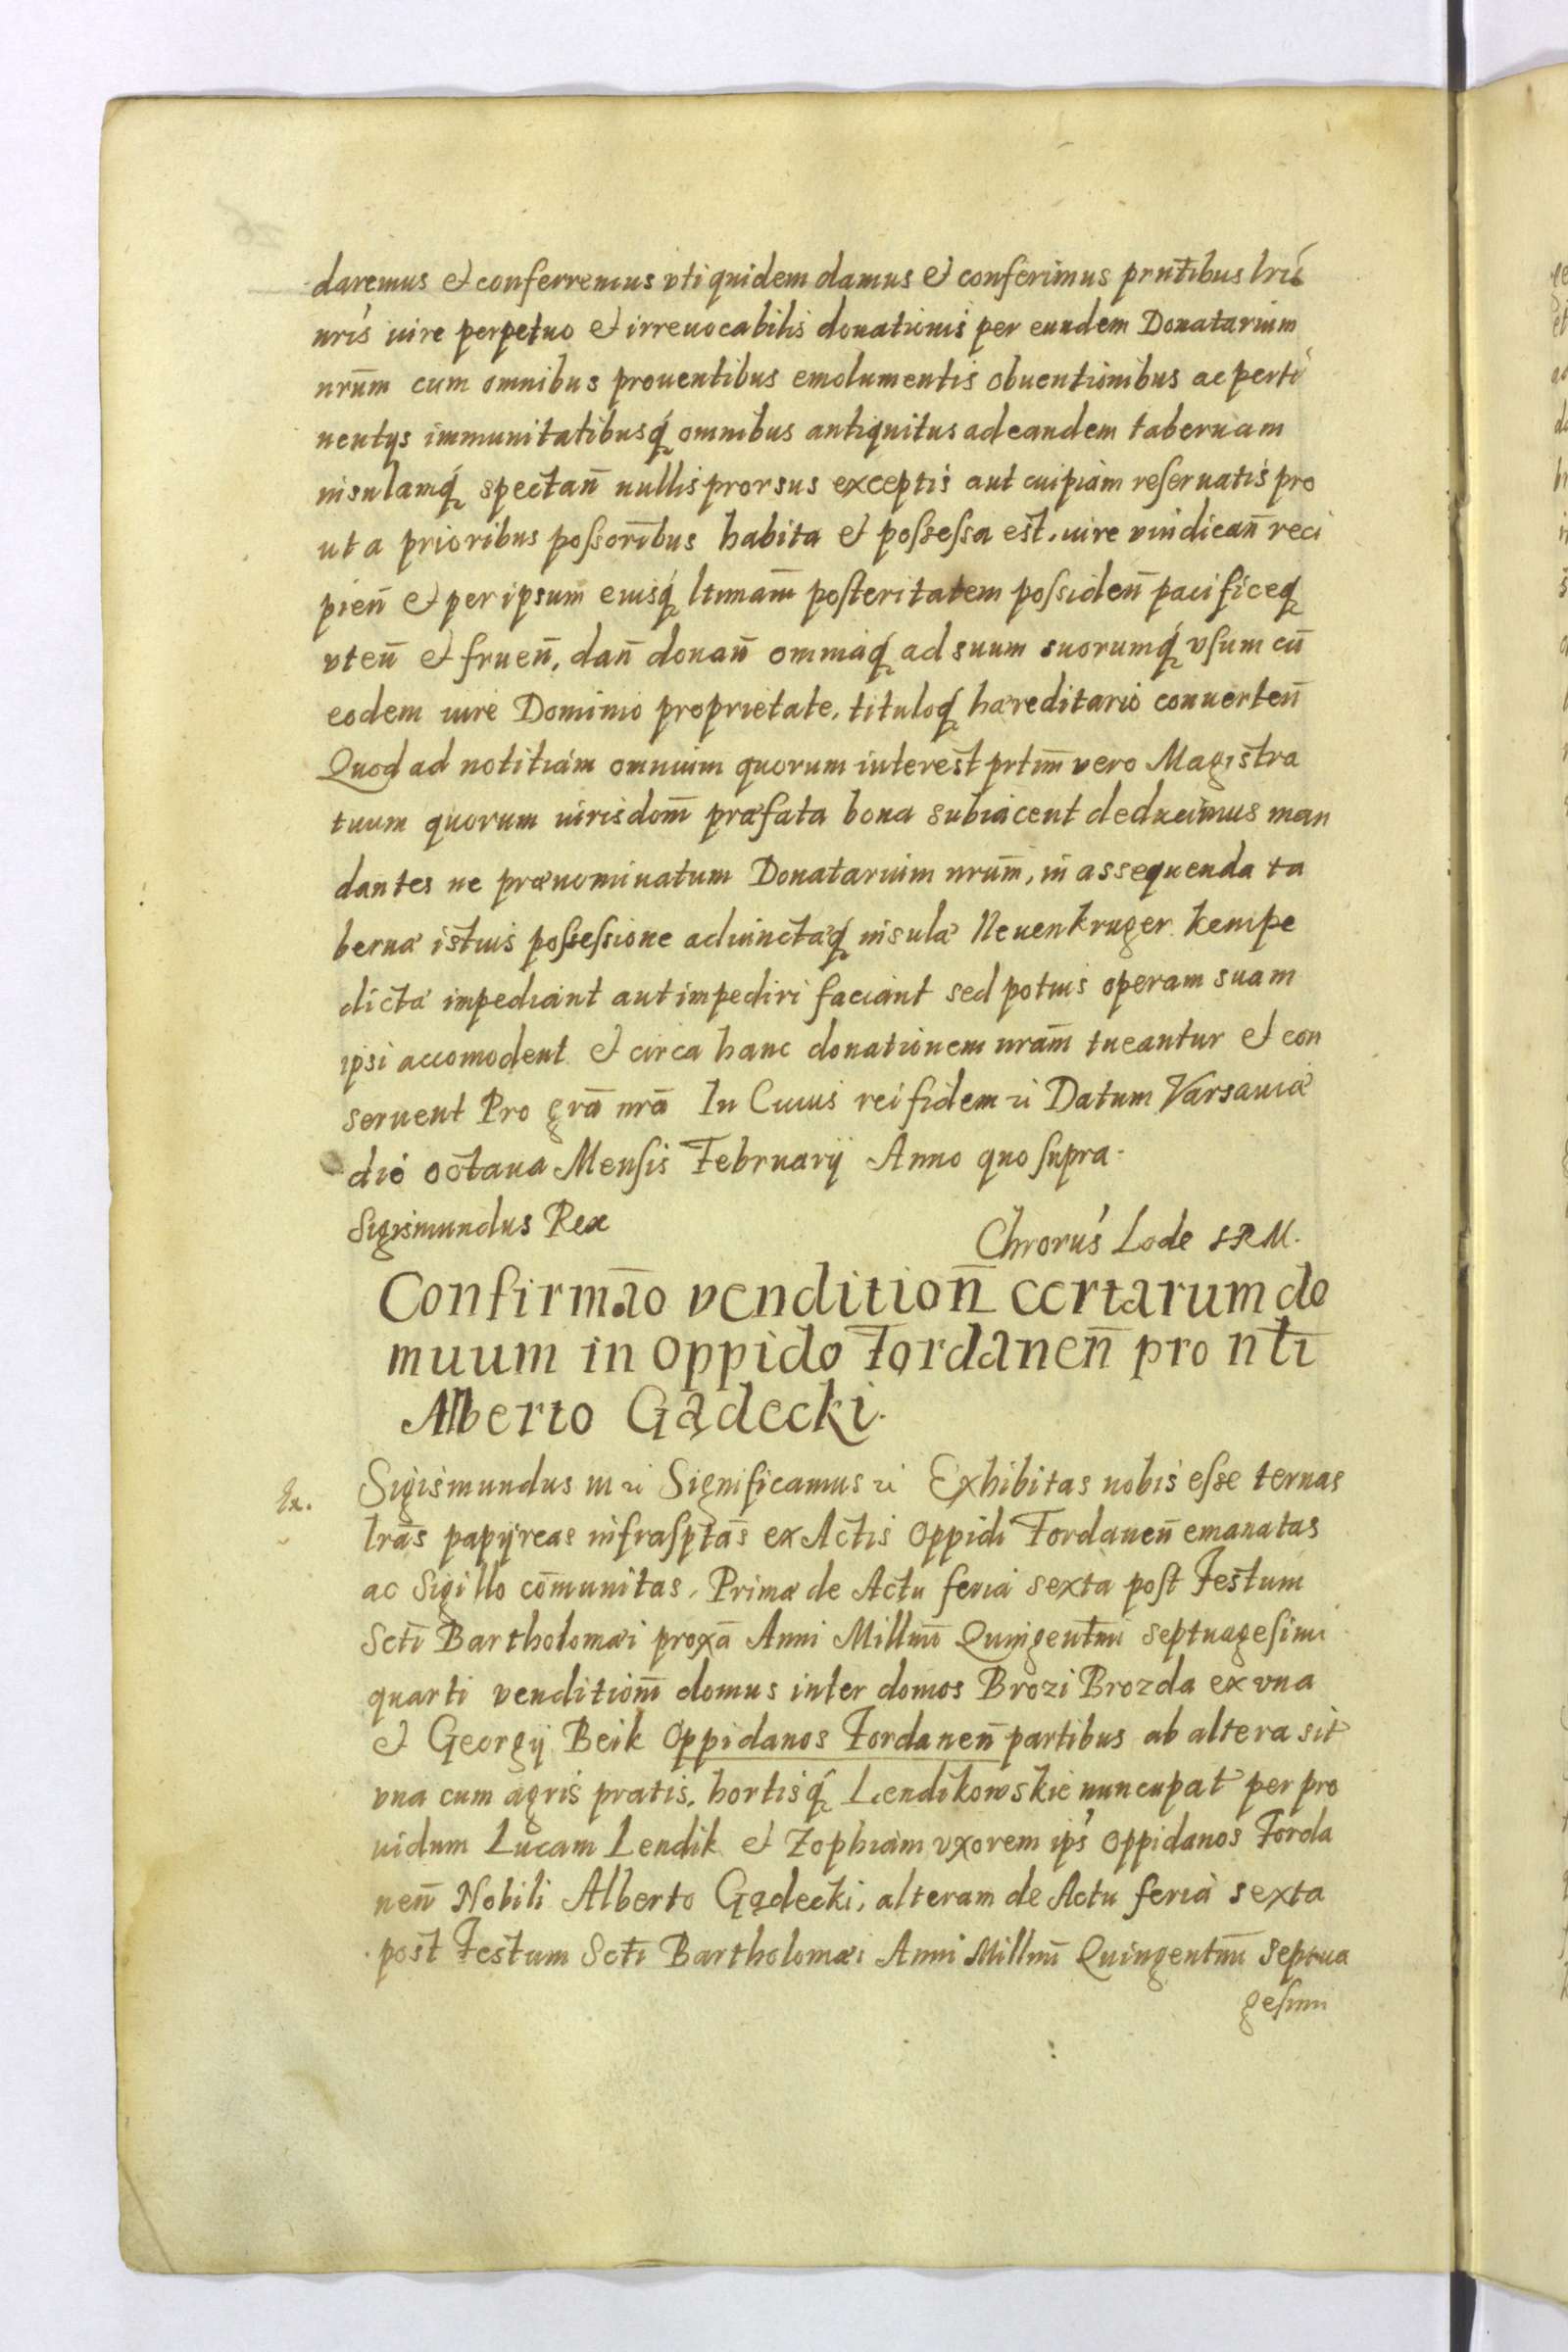 daremus et conferremus vti quidem damus et conferimus prntibus lris
nris iure perpetuo et irreuocabilis donationis per eundem Donatarium
nrum̄ cum omnibus prouentibus emolumentis obuentionibus ac perti
nentijs immunitatibusq́ omnibus antiquitus ad eandem tabernam
insulamq́ spectan̄ nullis prorsus exceptis aut cuipiam reseruatis pro
ut a prioribus possorībus habita et possessa est, iure vindican̄ reci
pien̄ et per ipsum eiusq́ ltimam̄ posteritatem possiden̄ pacificeq́
vten̄ et fruen̄, dan̄ donan̄ omniaq́ ad suum suorumq́ vsum cū
eodem iure Dominio proprietate, tituloq́ hæreditario conuerten̄
Quod ad notitiam omnium quorum interest prtim̄ vero Magistra
tuum quorum iurisdom̄ præfata bona subiacent deducimus man
dantes ne prænominatum Donatarium nrum̄, in assequenda ta
bernæ istius possessione adiunctæq́ insulæ Neuenkruger Kempe
dictæ impediant aut impediri faciant sed potius operam suam
ipsi accomodent et circa hanc donationem nram̄ tueantur et con
seruent Pro grā nrā In Cuius rei fidem ꝛc Datum Varsauiæ
die octaua Mensis Februarij Anno quo supra.
Sigismundus Rex
Chrorus Lode SRM.
Confirmāo vendition̄ certarum do
muum in oppido Fordanen̄ pro nti
Alberto Gądecki.
Ex. Sigismundus III ꝛc Significamus ꝛc Exhibitas nobis esse ternas
lrās papÿreas infrasptās ex Actis oppidi Fordanen̄ emanatas
ac Sigillo cōmunitas, Primæ de Actu feria sexta post Festum
Scti Bartholomæi proxā Anni Millmī Quingentmī septuagesimi
quarti venditiom̄ domus inter domos Brozi Brozda ex vna
et Georgij Beik oppidanos Fordanen̄ partibus ab altera sit
vna cum agris pratis, hortisq́ Lendikowskie nuncupat per pro
uidum Lucam Lendik et Zophiam vxorem ips oppidanos Forda
nen̄ Nobili Alberto Gądecki, alteram de Actu feria sexta
post Festum Scti Bartholomæi Anni Millmī Quingentmī septua
gesimi